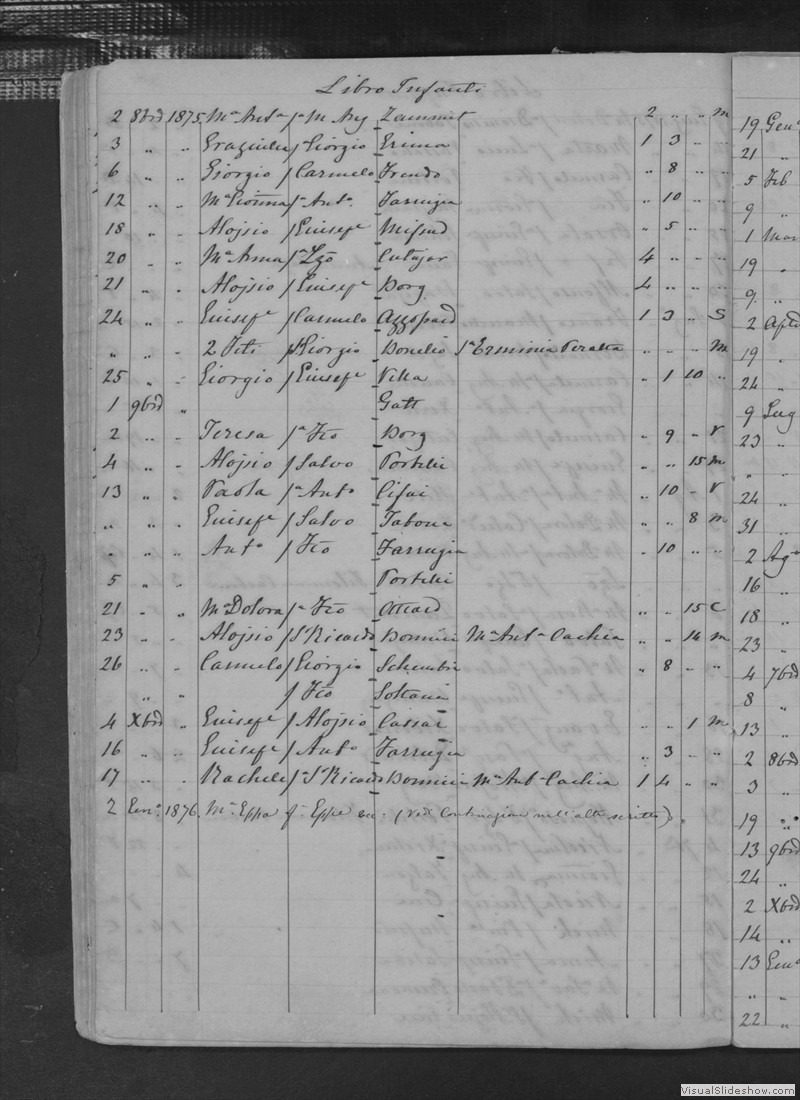 Libro Infanti
2 8bre 1875 Ma Anta fa M Ang Zammit 2 " " m
3 " " Graziulla fa Giorgio Erima 1 3 " "
6 " " Giorgio f Carmelo Frendo " 8 " "
12 " " Ma Giovna fa Anto Farrugia " 10 " "
18 " " Alojsio f Giusepe Mifsud " 5 " "
20 " " Ma Anna fa Lzo Cutajar 4 " " "
21 " " Alojsio f Giusepe Borg 4 " " "
24 " " Giusepe f Carmelo Azzopard 1 3 " S
" " " 2 Feti Giorgio Bonello Erminia Peralta " " " m
25 " " Giorgio f Giusepe Vella " 1 10 "
1 9bre " Gatt
2 " " Teresa fa Fco Borg " 9 " V
4 " " Alojsio f Salvo Portelli " " 15 m
13 " " Paola fa Anto Cifai " 10 " V
" " " Giusepe f Salvo Tabone " " 8 m
" " " Anto f Fco Farrugia " 10 " "
5 " " Portelli
21 " " Ma Dolora fa Fco Attard " " 15 C
23 " " Alojsio f Sr Ricardo Bonnici Ma Anta Cachia " " 14 m
26 " " Carmelo f Giorgio Schembri " 8 " "
" " f Fco Soltana
4 Xbre " Giusepe f Alojsio Cassar " " 1 m
16 " " Giusepe f Anto Farrugia " 3 " "
17 " " Rachele fa Sr Ricardo Bonnici Ma Ant Cachia 1 4 " "
2 Genº 1876. Ma Eppa fa Eppe ec. (vedi Continuazione nell'altro scritto).
19 Genº
21 "
5 Feb
9 "
1 Mar
19 "
9 "
2 Aple
19 "
24 "
9 Lug
23 "
" "
24 "
31 "
2 Ago
16 "
18 "
23 "
4 7bre
8 "
13 "
2 8bre
3 "
19 "
13 9bre
24 "
2 Xbre
14 "
13 Genº
" "
22 "
VisualSlideshow.com